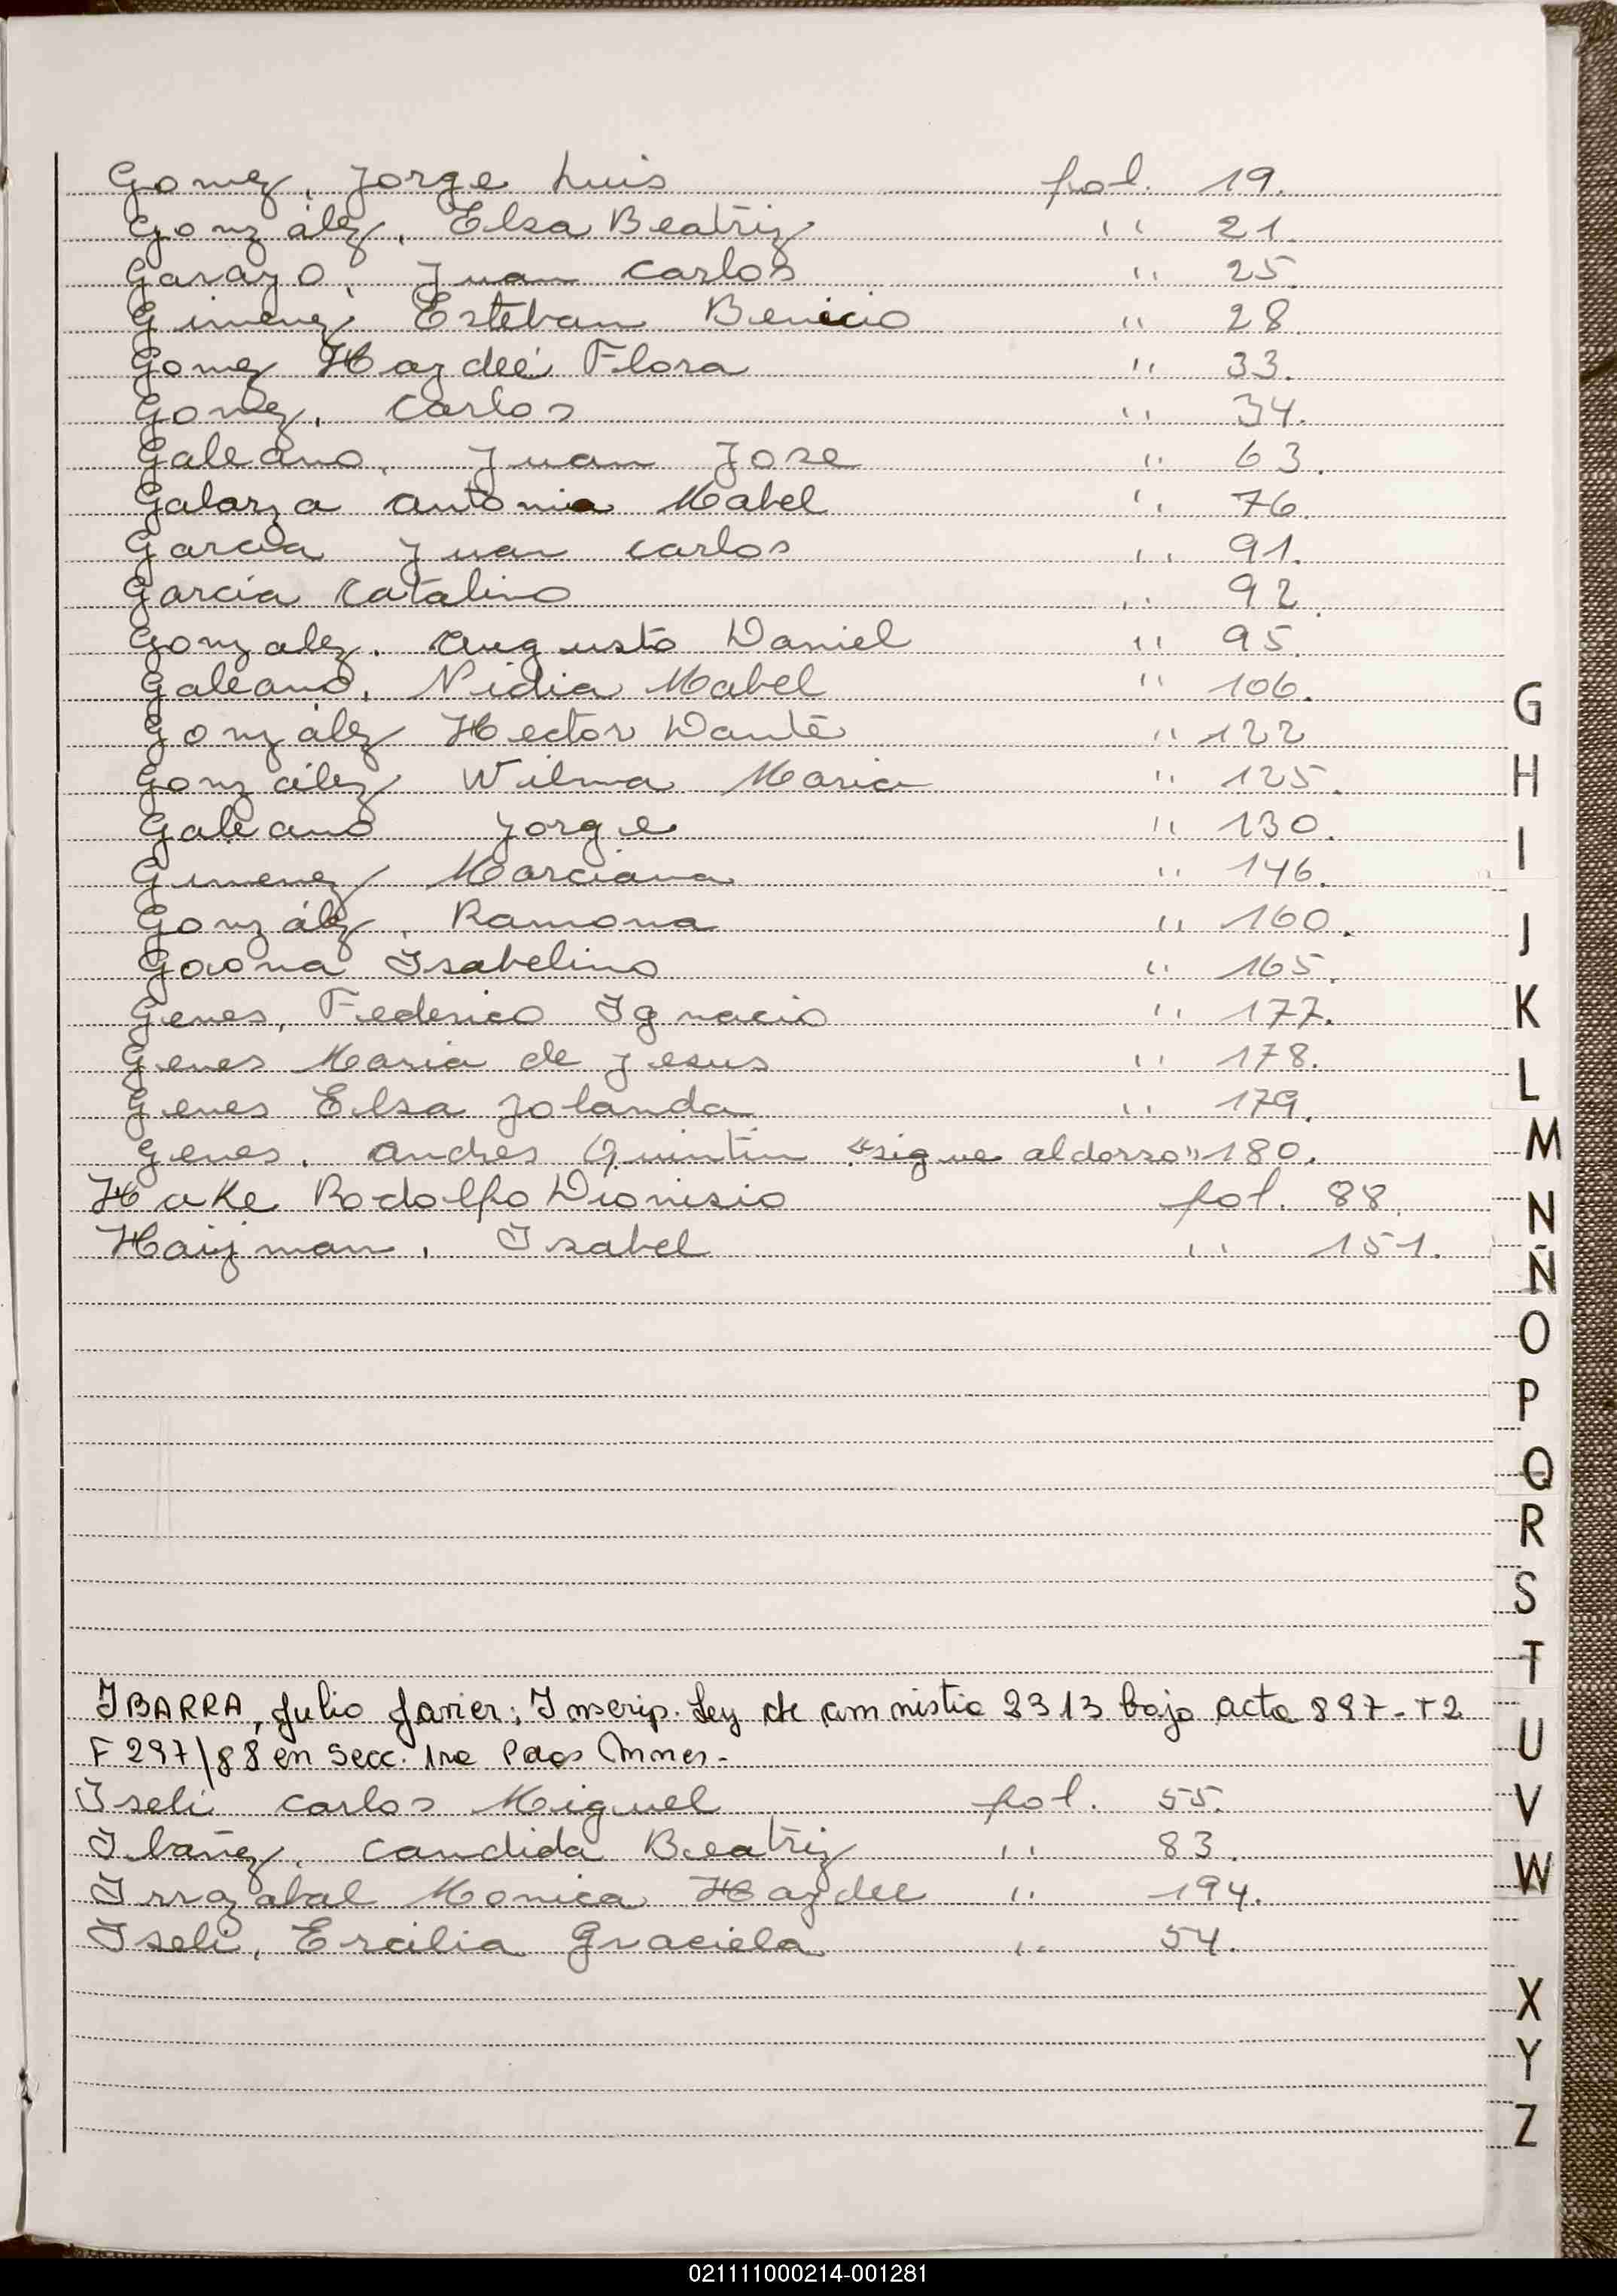 Gomez, Jorge Luis fol. 19.
González, Elsa Beatriz " 21.
Garayo, Juan Carlos " 25.
Gimenez Esteban Benicio " 28.
Gomez Haydeé Flora " 33.
Gomez, Carlos " 34.
Galeano, Juan Jose " 63.
Galarza Antonia Mabel " 76.
Garcia Juan Carlos " 91.
Garcia Catalino " 92.
Gonzalez, Augusto Daniel " 95.
Galeano, Nidia Mabel " 106.
González Hector Dante " 122
González Wilma Maria " 125.
Galeano Jorge " 130.
Gimenez Marciana " 146.
González, Ramona " 160.
Gaona Isabelino " 165.
Genes, Federico Ignacio " 177.
Genes Maria de Jesus " 178.
Genes Elsa Jolanda " 179.
Genes, Andres Quintin "sigue al dorso" 180.
Hake Rodolfo Dionisio fol. 88.
Haijman, Isabel " 151.
IBARRA, Julio Javier; Inscrip. Ley de amnistia 2313 bajo acta 897-T2
F 297/88 en Secc. 1ra Pdos
Iseli Carlos Miguel fol. 55.
Ibañez, Candida Beatriz " 83.
Irrazabal Monica Haydee " 194.
Iseli, Ercilia Graciela " 54.
G
H
I
J
K
L
M
N
Ñ
O
P
Q
R
S
T
U
V
W
X
Y
Z
021111000214-001281